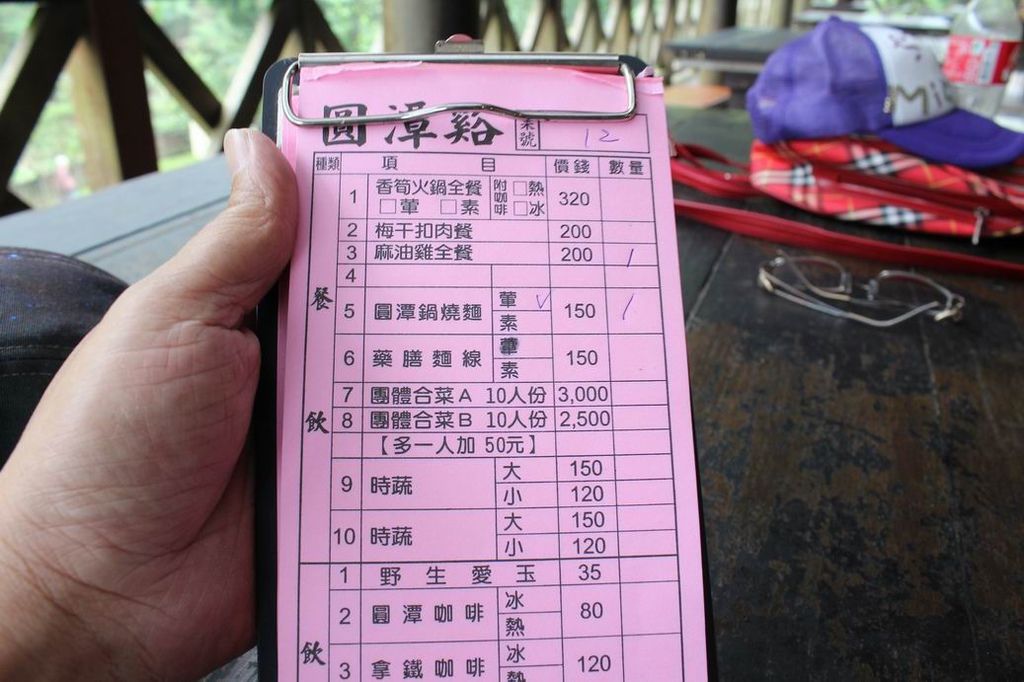 圓潭谿 桌號 12
種類 項目 價錢 數量
餐飲
1 香筍火鍋全餐 附咖啡 □熱 320
□葷 □素 □冰
2 梅干扣肉餐 200
3 麻油雞全餐 200 1
4
5 圓潭鍋燒麵 葷 ✓ 150 1
素
6 藥膳麵線 葷 150
素
7 團體合菜A 10人份 3,000
8 團體合菜B 10人份 2,500
【多一人加 50元】
9 時蔬 大 150
小 120
10 時蔬 大 150
小 120
飲
1 野生愛玉 35
2 圓潭咖啡 冰 80
熱
3 拿鐵咖啡 冰 120
熱